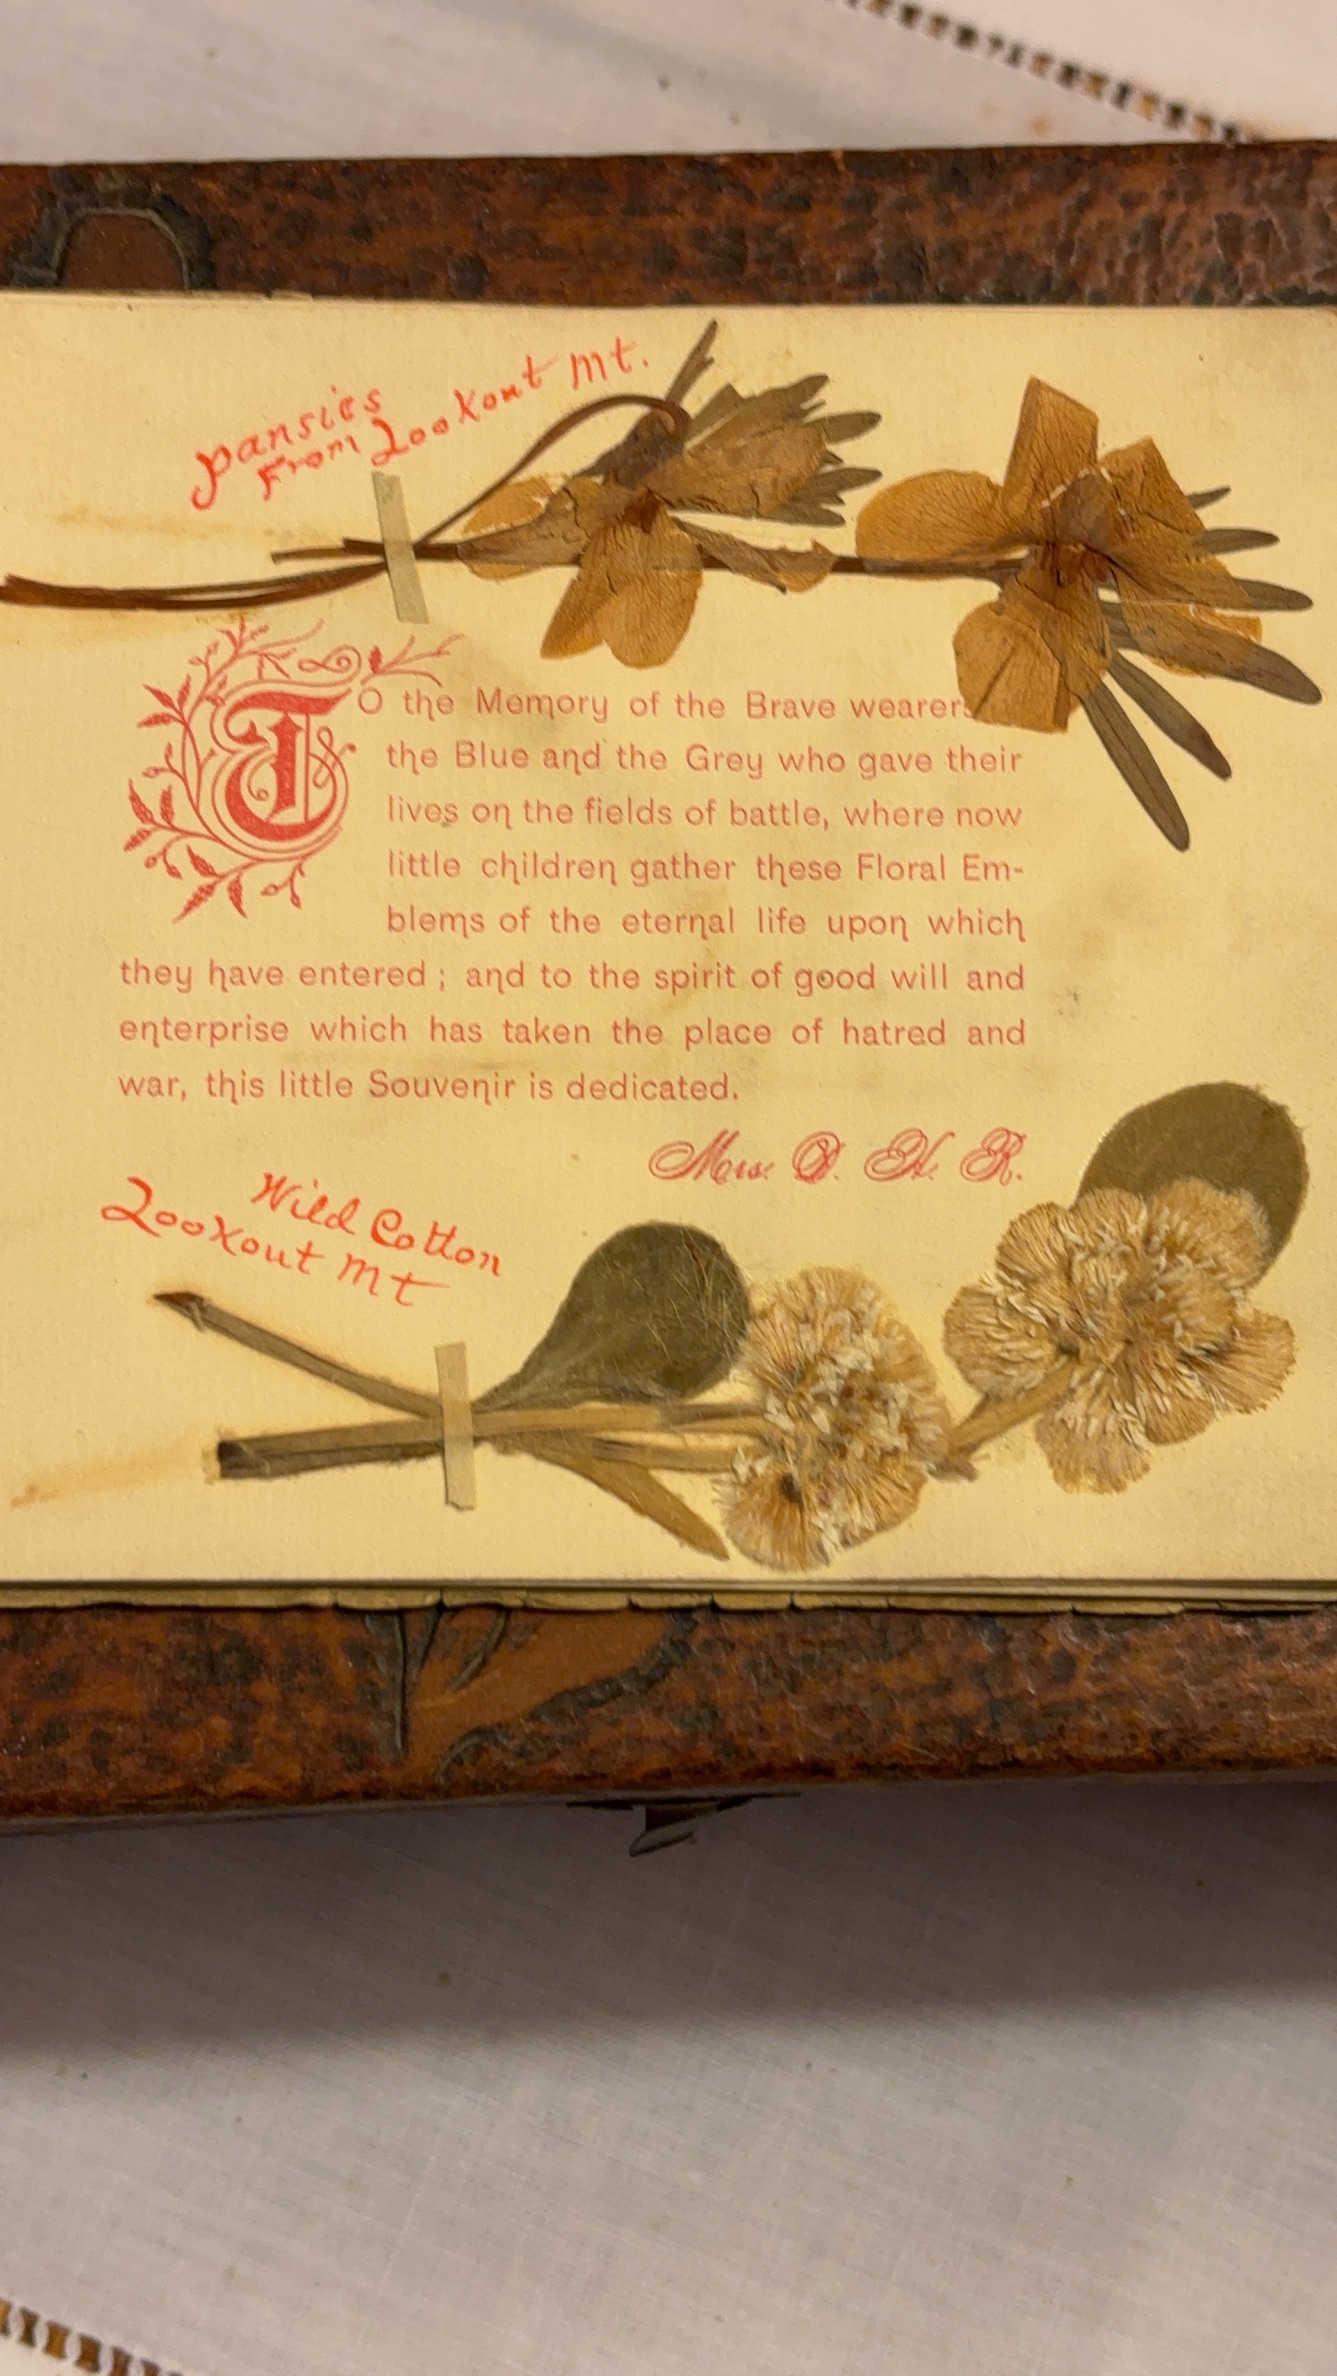 pansies
From Lookout Mt.
To the Memory of the Brave wearers
the Blue and the Grey who gave their
lives on the fields of battle, where now
little children gather these Floral Em-
blems of the eternal life upon which
they have entered; and to the spirit of good will and
enterprise which has taken the place of hatred and
war, this little Souvenir is dedicated.
Mrs. H. R.
Wild Cotton
Lookout Mt